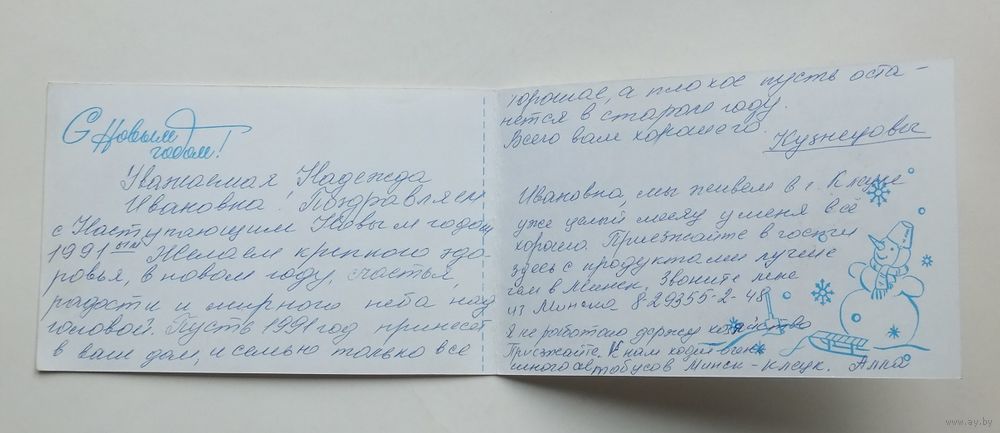 С Новым
годом!
Уважаемая Надежда
Ивановна! Поздравляем
с Наступающим Новым годом
1991 ым Желаем крепкого здо-
ровья, в новом году, счастья,
радости и мирного неба над
головой. Пусть 1991 год принесёт
в ваш дом, и семью только все
хорошее, а плохое пусть оста-
нется в старого году.
Всего вам хорошего.
Кузнецовы
Ивановна, мы живем в г. Клецке
уже целый месяц у меня всё
хорошо Приезжайте в гости
здесь с продуктами лучше
чем в Минск. Звоните мне
из Минска 8-29355-2-48
Я не работаю держу хозяйство
Приезжайте. К нам ходит очень
много автобусов Минск-Клецк. Алла
www.ay.by